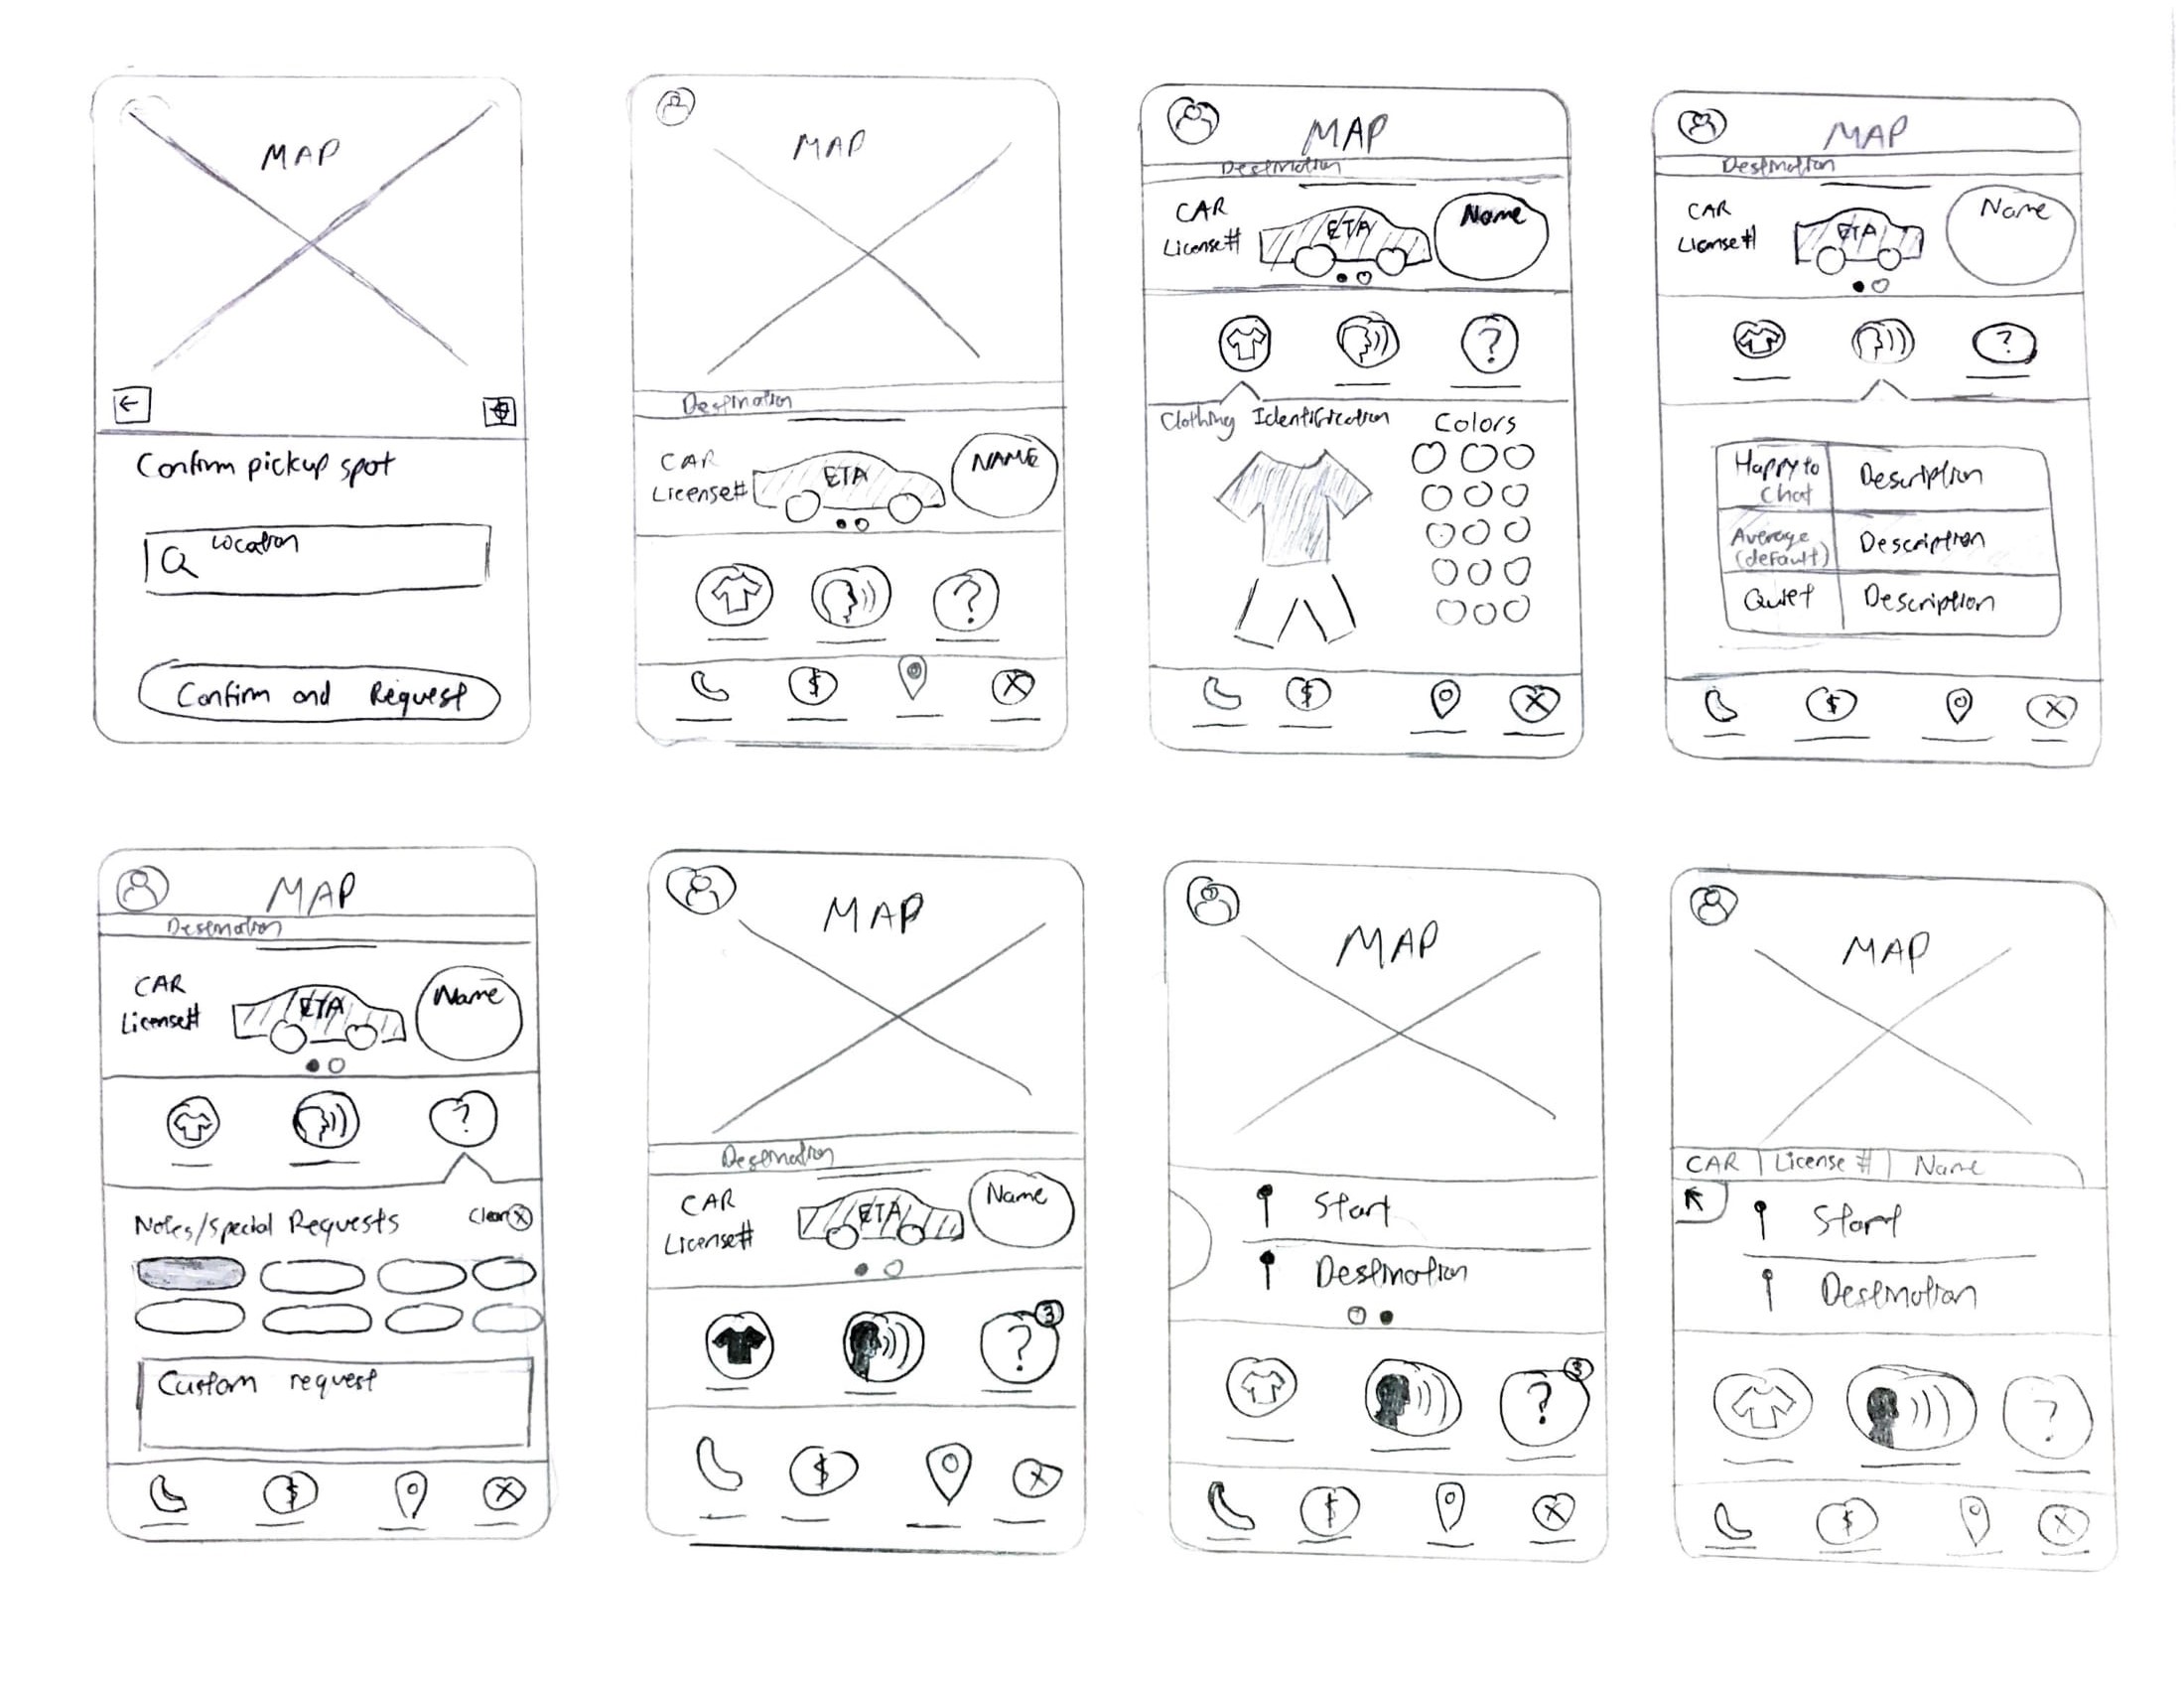 MAP
Confirm pickup spot
Location
Confirm and Request
MAP
Destination
CAR
License#
ETA
NAME
?
$
X
MAP
Destination
CAR
License#
ETA
Name
?
Clothing Identification
Colors
$
X
MAP
Destination
CAR
License#
ETA
Name
?
Happy to
Chat
Description
Average
(default)
Description
Quiet
Description
$
X
MAP
Destination
CAR
License#
ETA
Name
?
Notes/Special Requests
Clear X
Custom request
$
X
MAP
Destination
CAR
License#
ETA
Name
?
3
$
X
MAP
Start
Destination
?
3
$
X
MAP
CAR | License # | Name
Start
Destination
?
$
X